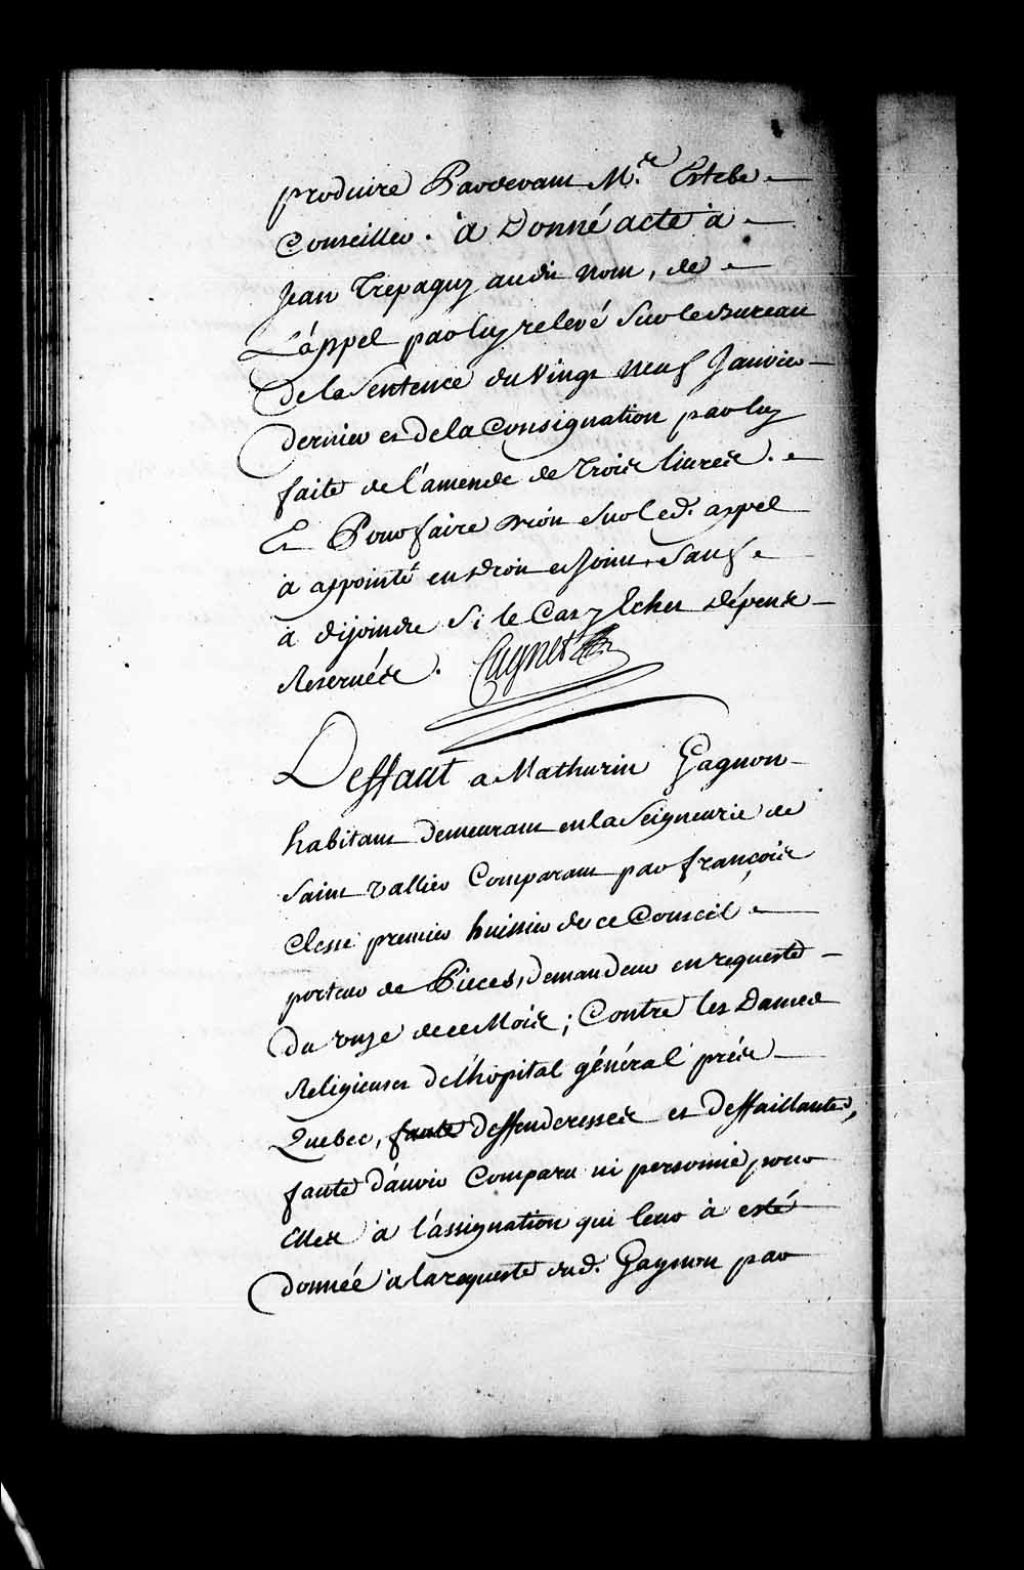 produire Pardevant M.e Estebe
Conseiller. à Donné acte à
Jean Trepagny audit nom, de
L'appel par luy relevé sur le Bureau
de la Sentence du Vingt neuf Janvier
dernier et de la Consignation par luy
faite de l'amende de trois livres.
Et Pour faire droit sur led. appel
à appointé en droit et joint, sauf
à disjoindre Si le Cas y Echet dépens
Reservés. Cugnet
Deffaut a Mathurin Gagnon
habitant demeurant en la Seigneurie de
Saint Vallier Comparant par françois
Clesse premier huissier de ce Conseil
porteur de Pieces, demandeur en requeste
du onze de ce Mois; Contre les Dames
Religieuses de l'hopital général près
Quebec, faute deffenderesses et deffaillantes,
faute d'avoir Comparu ni personne pour
Elles à l'assignation qui leur à esté
donnée à la requeste dud. Gagnon par